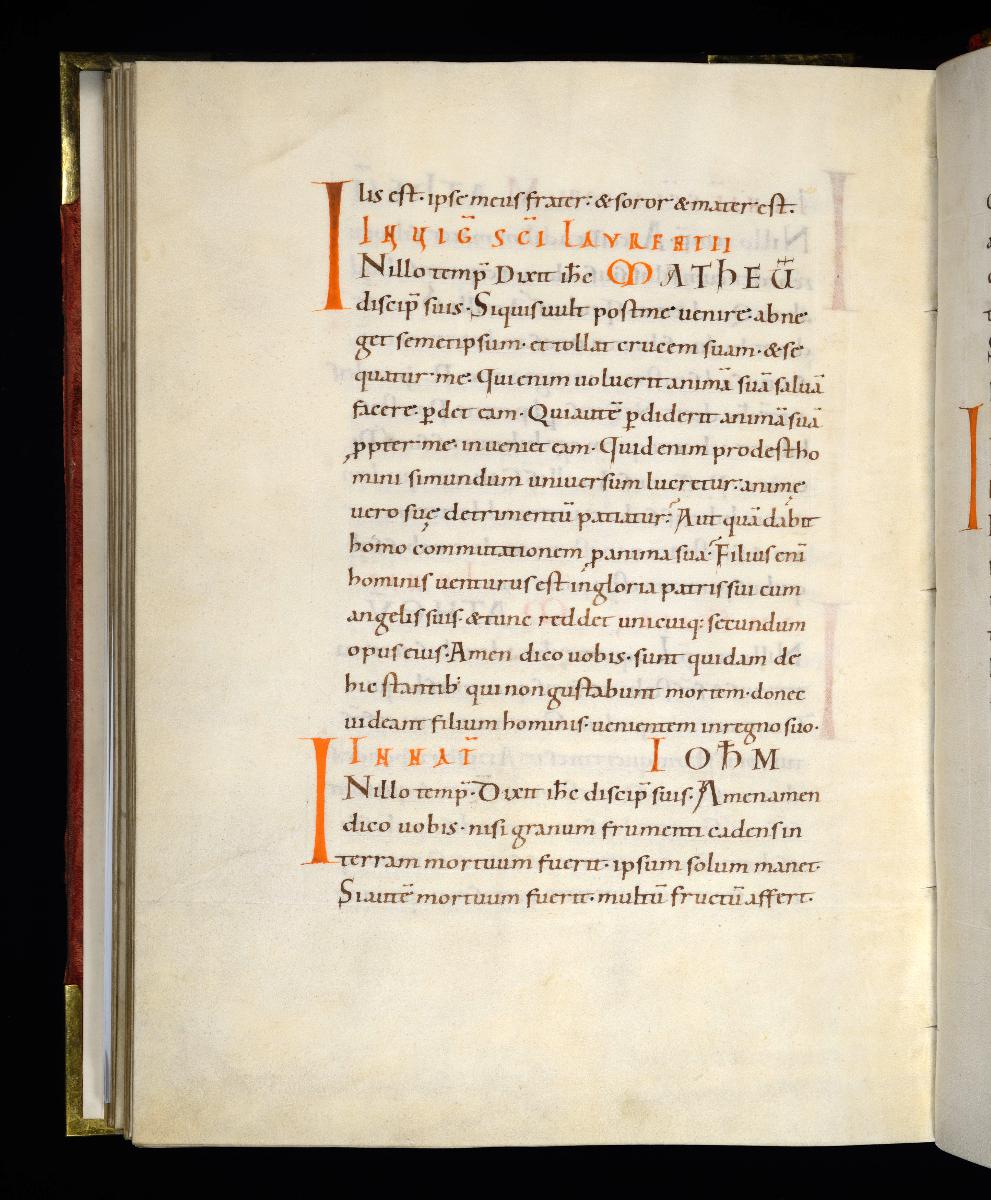 lis est· ipse meus frater· & soror & mater est·
IN VIG̅ SC̅I LAVRENTII
IN illo temp̅ Dixit ih̅c MATHEU̅
discip̅ suis· Siquis uult post me uenire· abne
get semetipsum· et tollat crucem suam· & se
quatur me· Qui enim uoluerit animā suā saluā
facere· ꝑdet eam· Qui autē ꝑdiderit animā suā
ꝓpter me· inueniet eam· Quid enim prodest ho
mini si mundum uniuersum lucretur· animę
uero suę detrimentū patiatur? Aut quā dabit
homo commutationem ꝓ anima sua? Filius enī
hominis uenturus est in gloria patris sui cum
angelis suis· & tunc reddet unicuiq: secundum
opus eius· Amen dico uobis· sunt quidam de
hic stantib; qui non gustabunt mortem· donec
uideant filium hominis uenientem in regno suo·
IN NAT̅ IOH̅M
IN illo temp̅· Dixit ih̅c discip̅ suis· Amen amen
dico uobis· nisi granum frumenti cadens in
terram mortuum fuerit· ipsum solum manet·
Si autē mortuum fuerit· multū fructū affert·